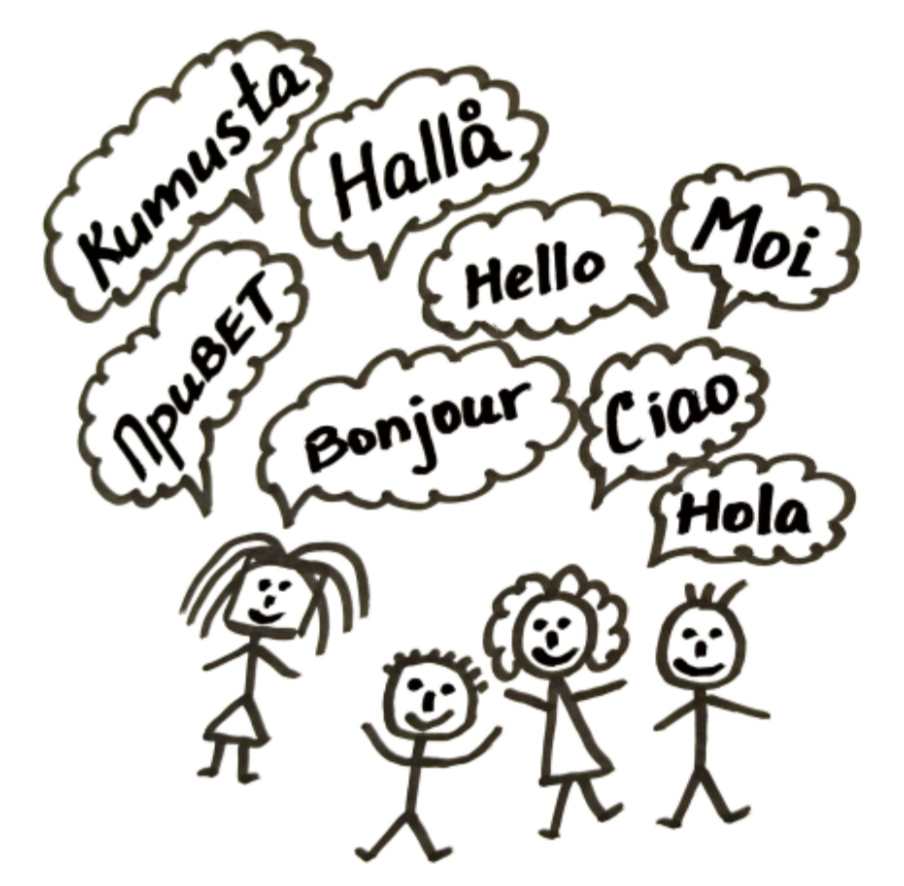 Kumusta
Hallå
Hello
Moi
ПривЕТ
Bonjour
Ciao
Hola